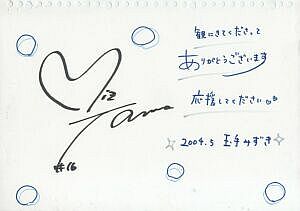 観にきてくださって
ありがとうございます
応援してください。
2004.5 玉手みずき
#16